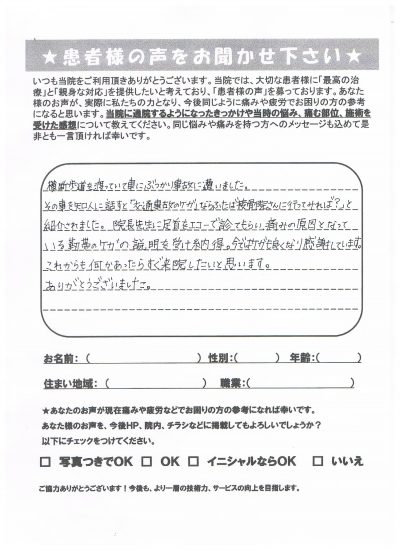 ★患者様の声をお聞かせ下さい★
いつも当院をご利用頂きありがとうございます。当院では、大切な患者様に「最高の治
療」と「親身な対応」を提供したいと考えており、「患者様の声」を募っております。あなた
様のお声が、実際に私たちの力となり、今後同じように痛みや疲労でお困りの方の参考
になると思います。当院に通院するようになったきっかけや当時の悩み、痛む部位、施術を
受けた感想について教えてください。同じ悩みや痛みを持つ方へのメッセージも込めて是
非とも一言頂ければ幸いです。
横断歩道を渡っていて車にぶつかり事故に遭いました。
その事を知人に話すと「交通事故のケガ」ならふたば接骨院さんに行ってみれば？」と
紹介されました。院長先生に足首をエコーで診てもらい痛みの原因となって
いる靭帯のケガの説明を受け納得。今はケガも良くなり感謝しています。
これからも何かあったらすぐ来院したいと思います。
ありがとうございました。
お名前：（ ） 性別：（ ） 年齢：（ ）
住まい地域：（ ） 職業：（ ）
★あなたのお声が現在痛みや疲労などでお困りの方の参考になれば幸いです。
あなた様のお声を、今後HP、院内、チラシなどに掲載してもよろしいでしょうか？
以下にチェックをつけてください。
□ 写真つきでOK □ OK □ イニシャルならOK □ いいえ
ご協力ありがとうございます！今後も、より一層の技術力、サービスの向上を目指します。